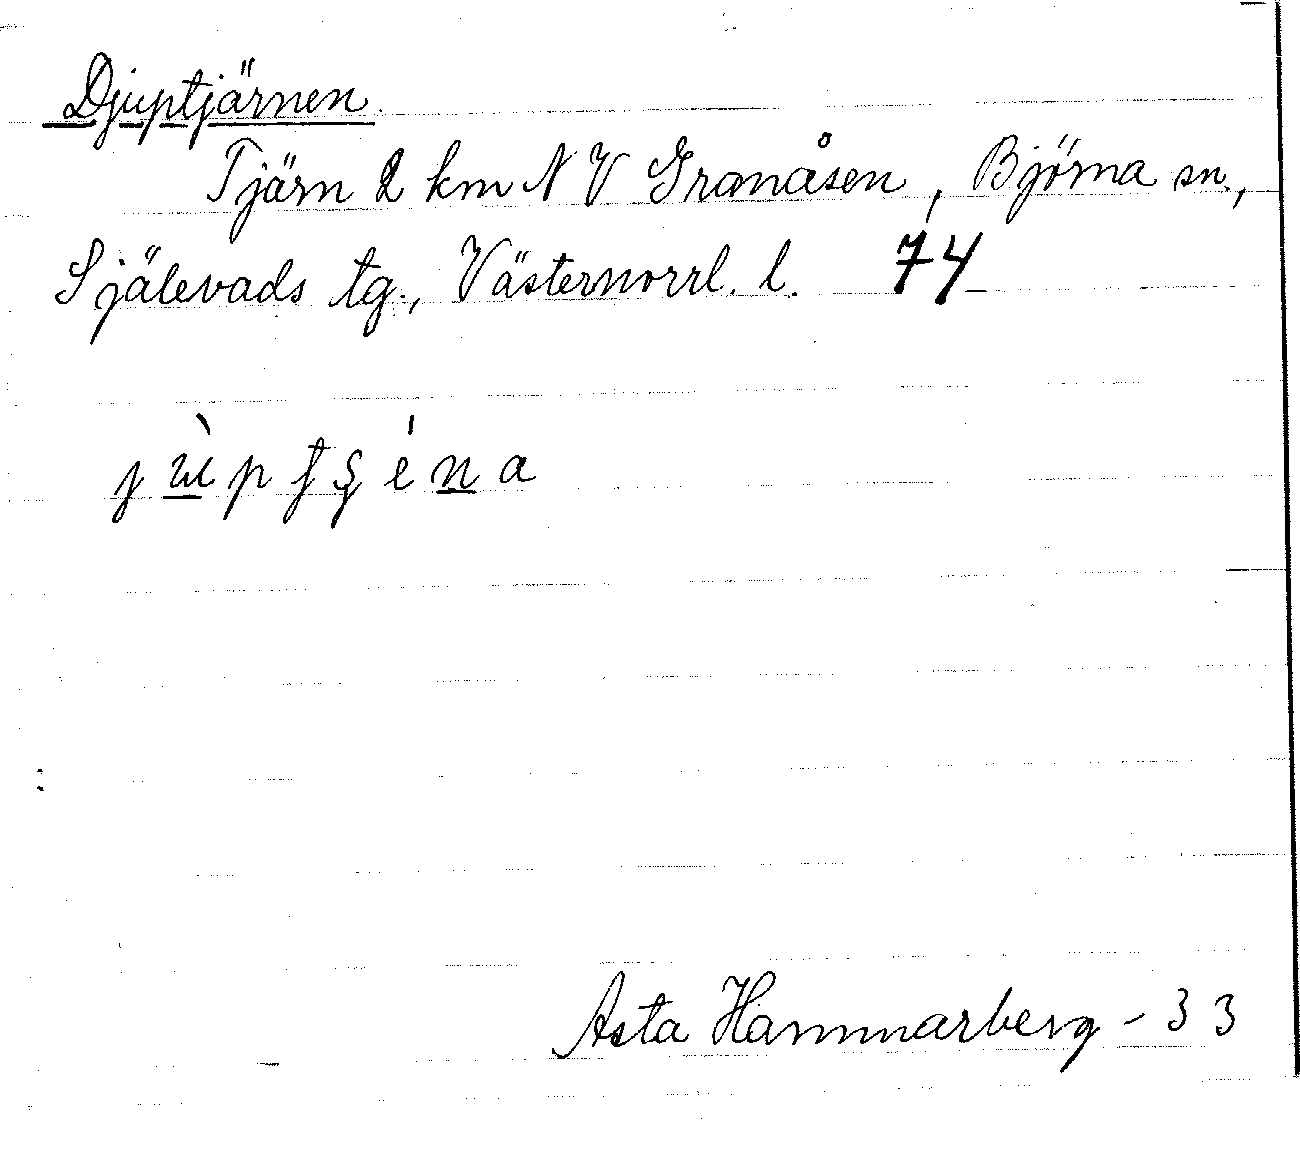 Djuptjärnen.
Tjärn 2 km N V Granåsen, Björna sn.,
Själevads tg., Västernorrl. l. 74
Asta Hammarberg - 33